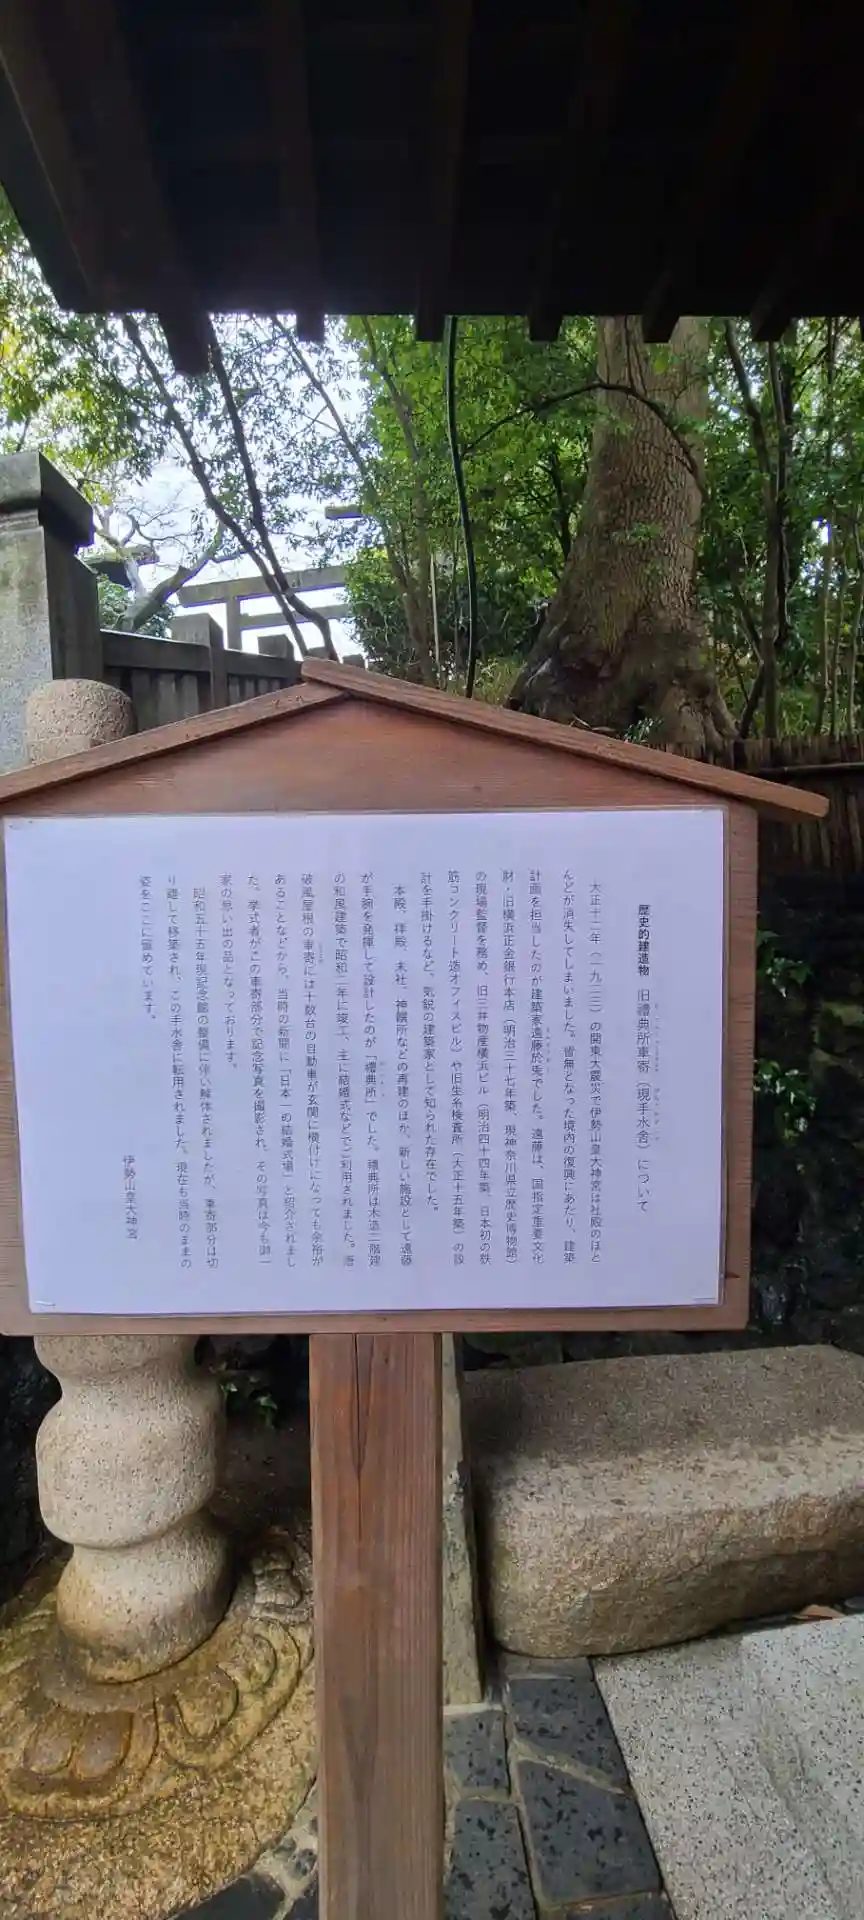 歴史的建造物　旧禮典所車寄（現手水舎）について
大正十二年（一九二三）の関東大震災で伊勢山皇大神宮は社殿のほと
んどが消失してしまいました。皆無となった境内の復興にあたり、建築
計画を担当したのが建築家遠藤於莵でした。遠藤は、国指定重要文化
財・旧横浜正金銀行本店（明治三十七年築、現神奈川県立歴史博物館）
の現場監督を務め、旧三井物産横浜ビル（明治四十四年築、日本初の鉄
筋コンクリート造オフィスビル）や旧生糸検査所（大正十五年築）の設
計を手掛けるなど、気鋭の建築家として知られた存在でした。
本殿、拝殿、末社、神饌所などの再建のほか、新しい施設として遠藤
が手腕を発揮して設計したのが「禮典所」でした。禮典所は木造二階建
の和風建築で昭和二年に竣工、主に結婚式などでご利用されました。唐
破風屋根の車寄には十数台の自動車が玄関に横付けになっても余裕が
あることなどから、当時の新聞に「日本一の結婚式場」と紹介されまし
た。挙式者がこの車寄部分で記念写真を撮影され、その写真は今も御一
家の思い出の品となっております。
昭和五十五年現記念館の整備に伴い解体されましたが、車寄部分は切
り離して移築され、この手水舎に転用されました。現在も当時のままの
姿をここに留めています。
伊勢山皇大神宮